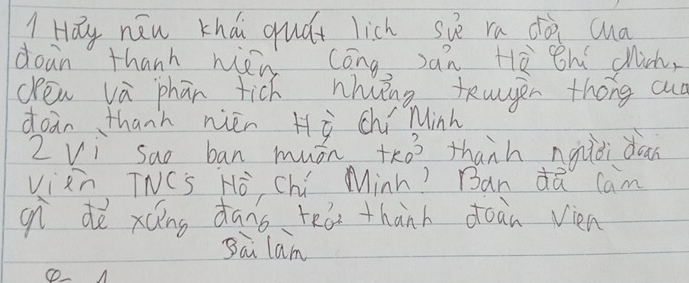 1 Hãy nêu khái quát lịch sử ra đời của
đoàn thanh niên Cộng sản Hồ Chí Minh,
nêu và phân tích những truyền thống của
đoàn thanh niên Hồ Chí Minh
2 Vì sao bạn muốn trở thành người đoàn
viên TNCS Hồ Chí Minh? Bạn đã làm
gì để xứng đáng trở thành đoàn viên
Bài làm